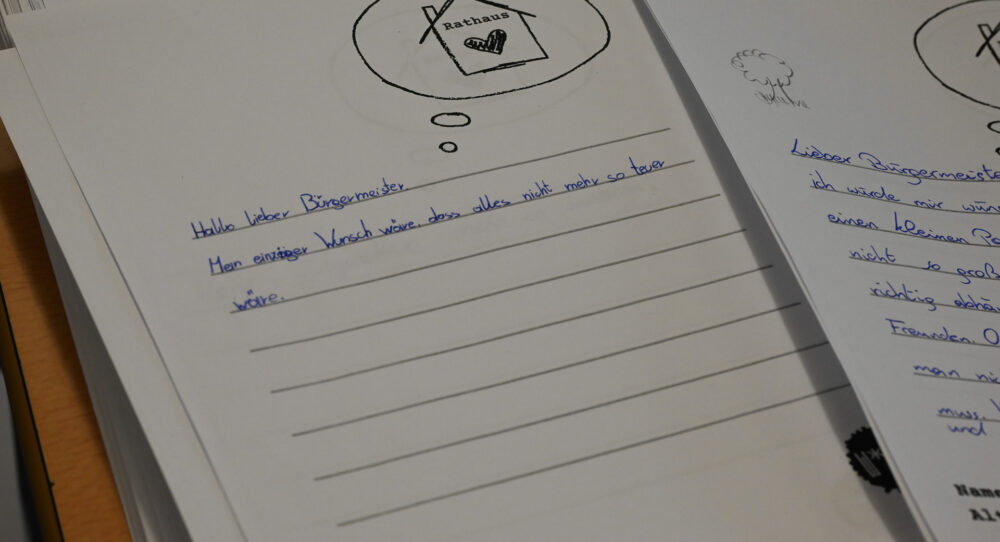 Rathaus
Hallo lieber Bürgermeister.
Mein einziger Wunsch wäre, dass alles nicht mehr so teuer
wäre.
Lieber Bürgermeiste
ich würde mir wün
einen kleinen Pa
nicht so groß
richtig abhä
Freunden. O
man ni
muss.
und
Name
Alt